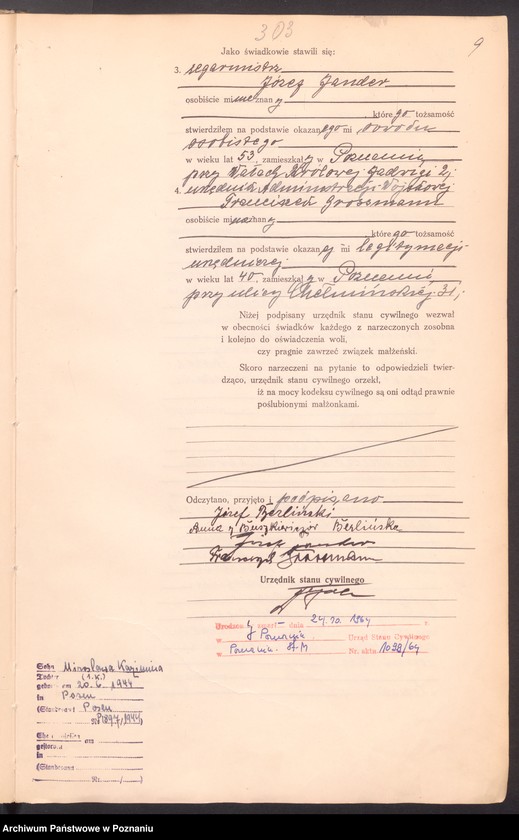 303
9
Jako świadkowie stawili się:
3. zegarmistrz
Józef Jander
osobiście mi nieznany
, którego tożsamość
stwierdziłem na podstawie okazanego mi dowodu
osobistego
w wieku lat 53, zamieszkały w Poznaniu
przy Wałach Królowej Jadwigi 2;
4. urzędnik Administracji Wojskowej
Franciszek Grossmann
osobiście mi nieznany
, którego tożsamość
stwierdziłem na podstawie okazanej mi legitymacji
urzędniczej
w wieku lat 40, zamieszkały w Poznaniu
przy ulicy Chełmińskiej 31;
Niżej podpisany urzędnik stanu cywilnego wezwał
w obecności świadków każdego z narzeczonych zosobna
i kolejno do oświadczenia woli,
czy pragnie zawrzeć związek małżeński.
Skoro narzeczeni na pytanie to odpowiedzieli twier-
dząco, urzędnik stanu cywilnego orzekł,
iż na mocy kodeksu cywilnego są oni odtąd prawnie
poślubionymi małżonkami.
Odczytano, przyjęto i podpisano
Józef Berliński
Anna z Buszkiewiczów Berlińska
Józef Jander
Franciszek Grossmann
Urzędnik stanu cywilnego
zmarł dnia 24.10.1964 r.
w Poznaniu Urząd Stanu Cywilnego
w Poznania St. M Nr. aktu 1098/64
Sohn Mirosława Kazimiera
Tochter (1.K.)
geboren am 20.6.1944
in Posen
(Standesamt Posen
Nr. 1894/1944)
am
geboren
in
(Standesamt
Nr. /)
Archiwum Państwowe w Poznaniu